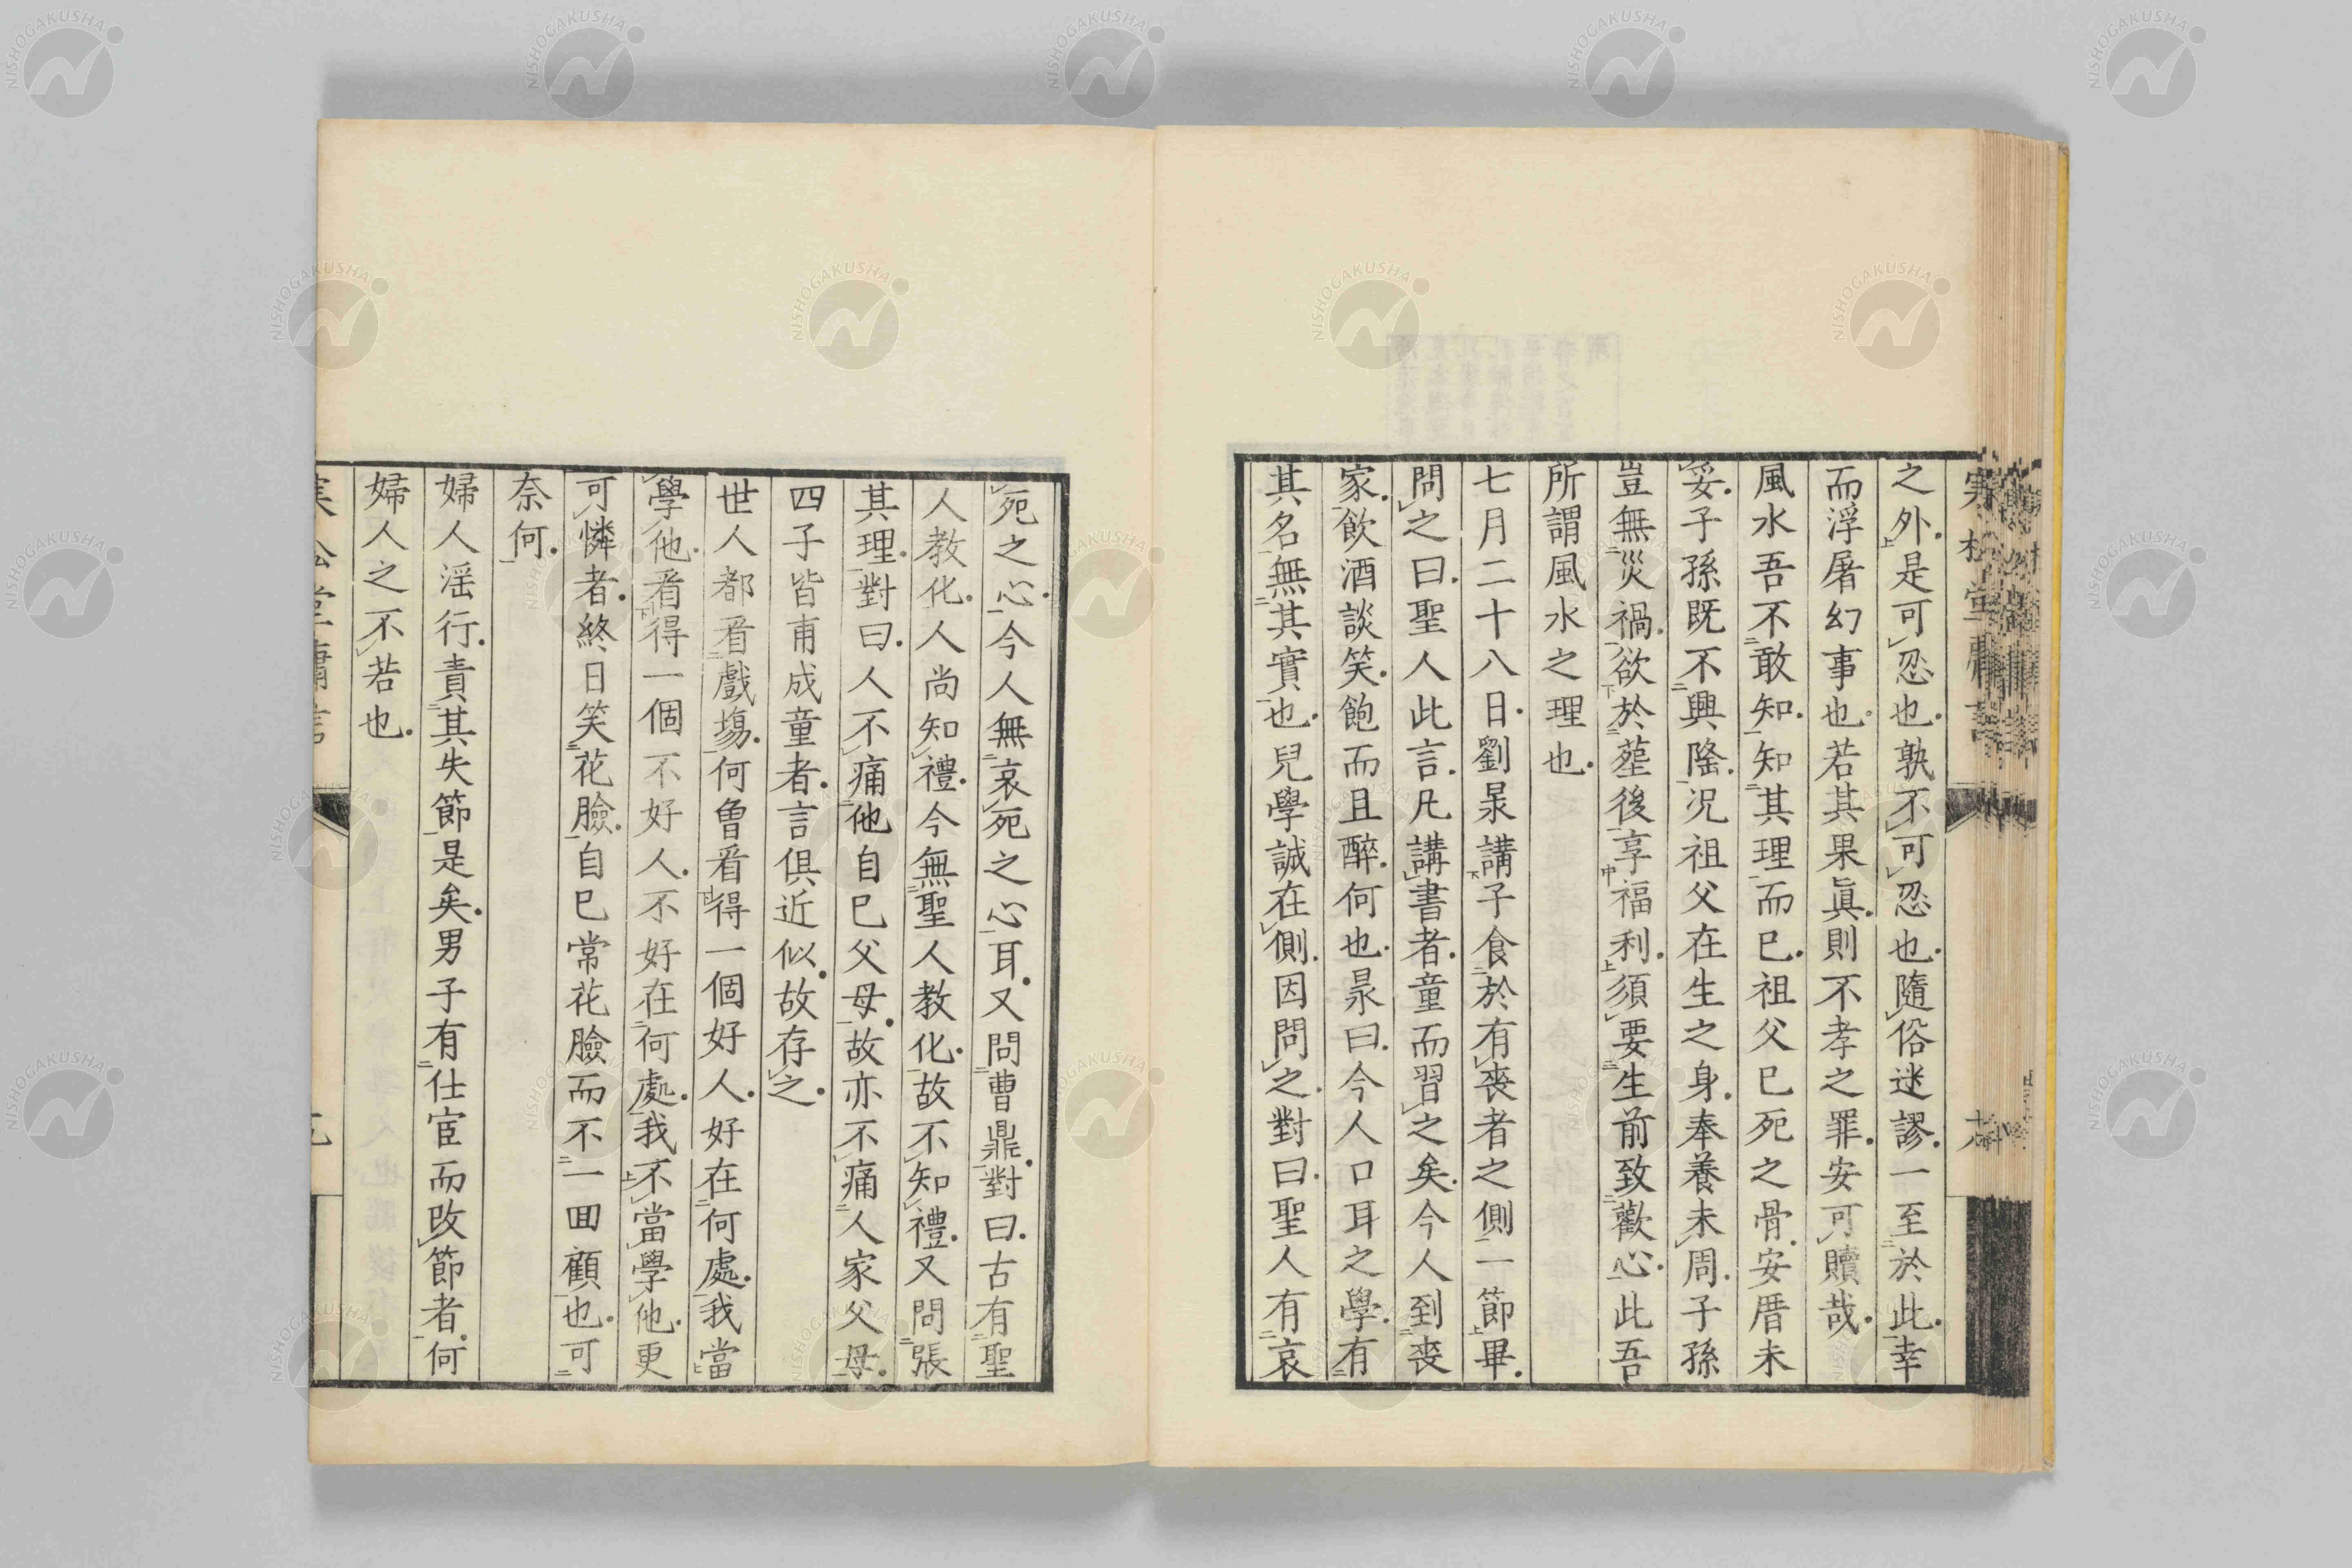 之外是可忍也孰不可忍也隨俗迷謬一至於此幸
而浮屠幻事也若其果眞則不孝之罪安可贖哉
風水吾不敢知知其理而已祖父已死之骨安厝未
妥子孫既不興隆况祖父在生之身奉養未周子孫
豈無災禍欲於塟後享福利須要生前致歡心此吾
所謂風水之理也
七月二十八日劉杲講子食於有喪者之側一節畢
問之曰聖人此言凡講書者童而習之矣今人到喪
家飲酒談笑飽而且醉何也杲曰今人口耳之學有
其名無其實也兒學誠在側因問之對曰聖人有哀
死之心今人無哀死之心耳又問曹鼎對曰古有聖
人教化人尚知禮今無聖人教化故不知禮又問張
其理對曰人不痛他自己父母故亦不痛人家父母
四子皆甫成童者言俱近似故存之
世人都看戲塲何曾看得一個好人好在何處我當
學他看得一個不好人不好在何處我不當學他更
可憐者終日笑花臉自己常花臉而不一回顧也可
奈何
婦人淫行責其失節是矣男子有仕宦而改節者何
婦人之不若也
NISHOGAKUSHA